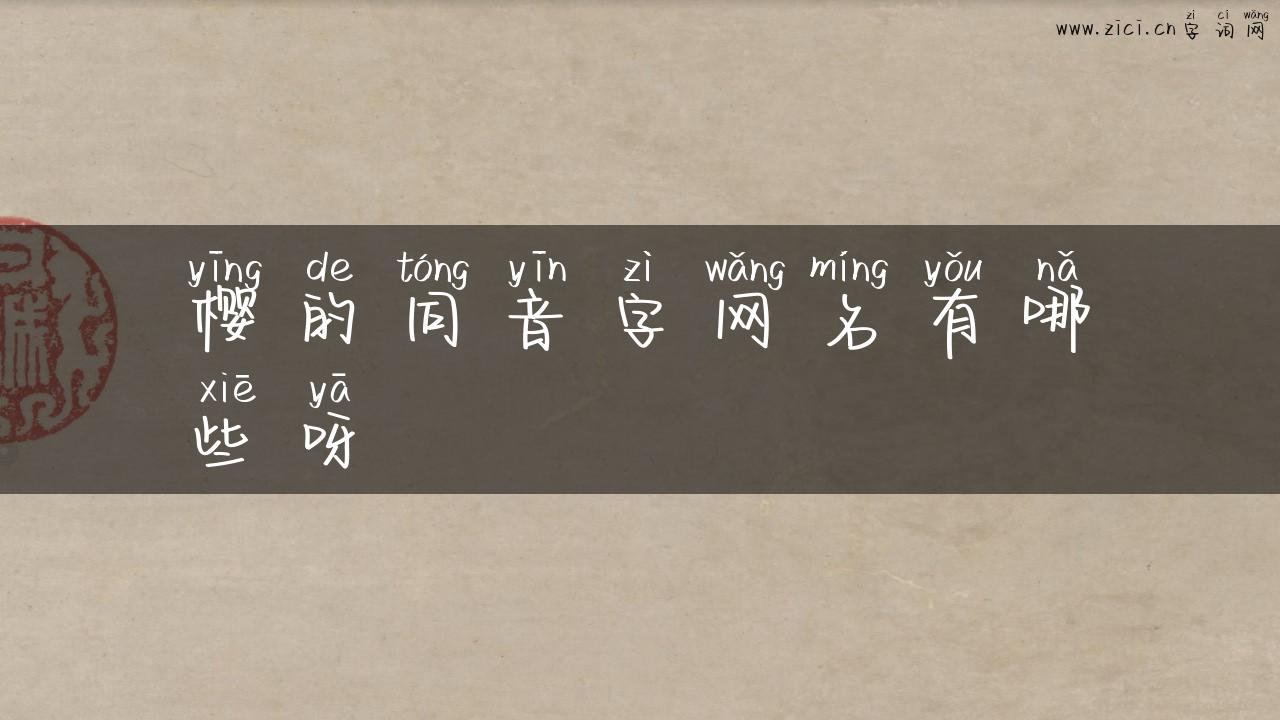 zì cí wǎng
www.zici.cn 字词网
yīng de tóng yīn zì wǎng míng yǒu nǎ
樱的同音字网名有哪
xiē yā
些呀